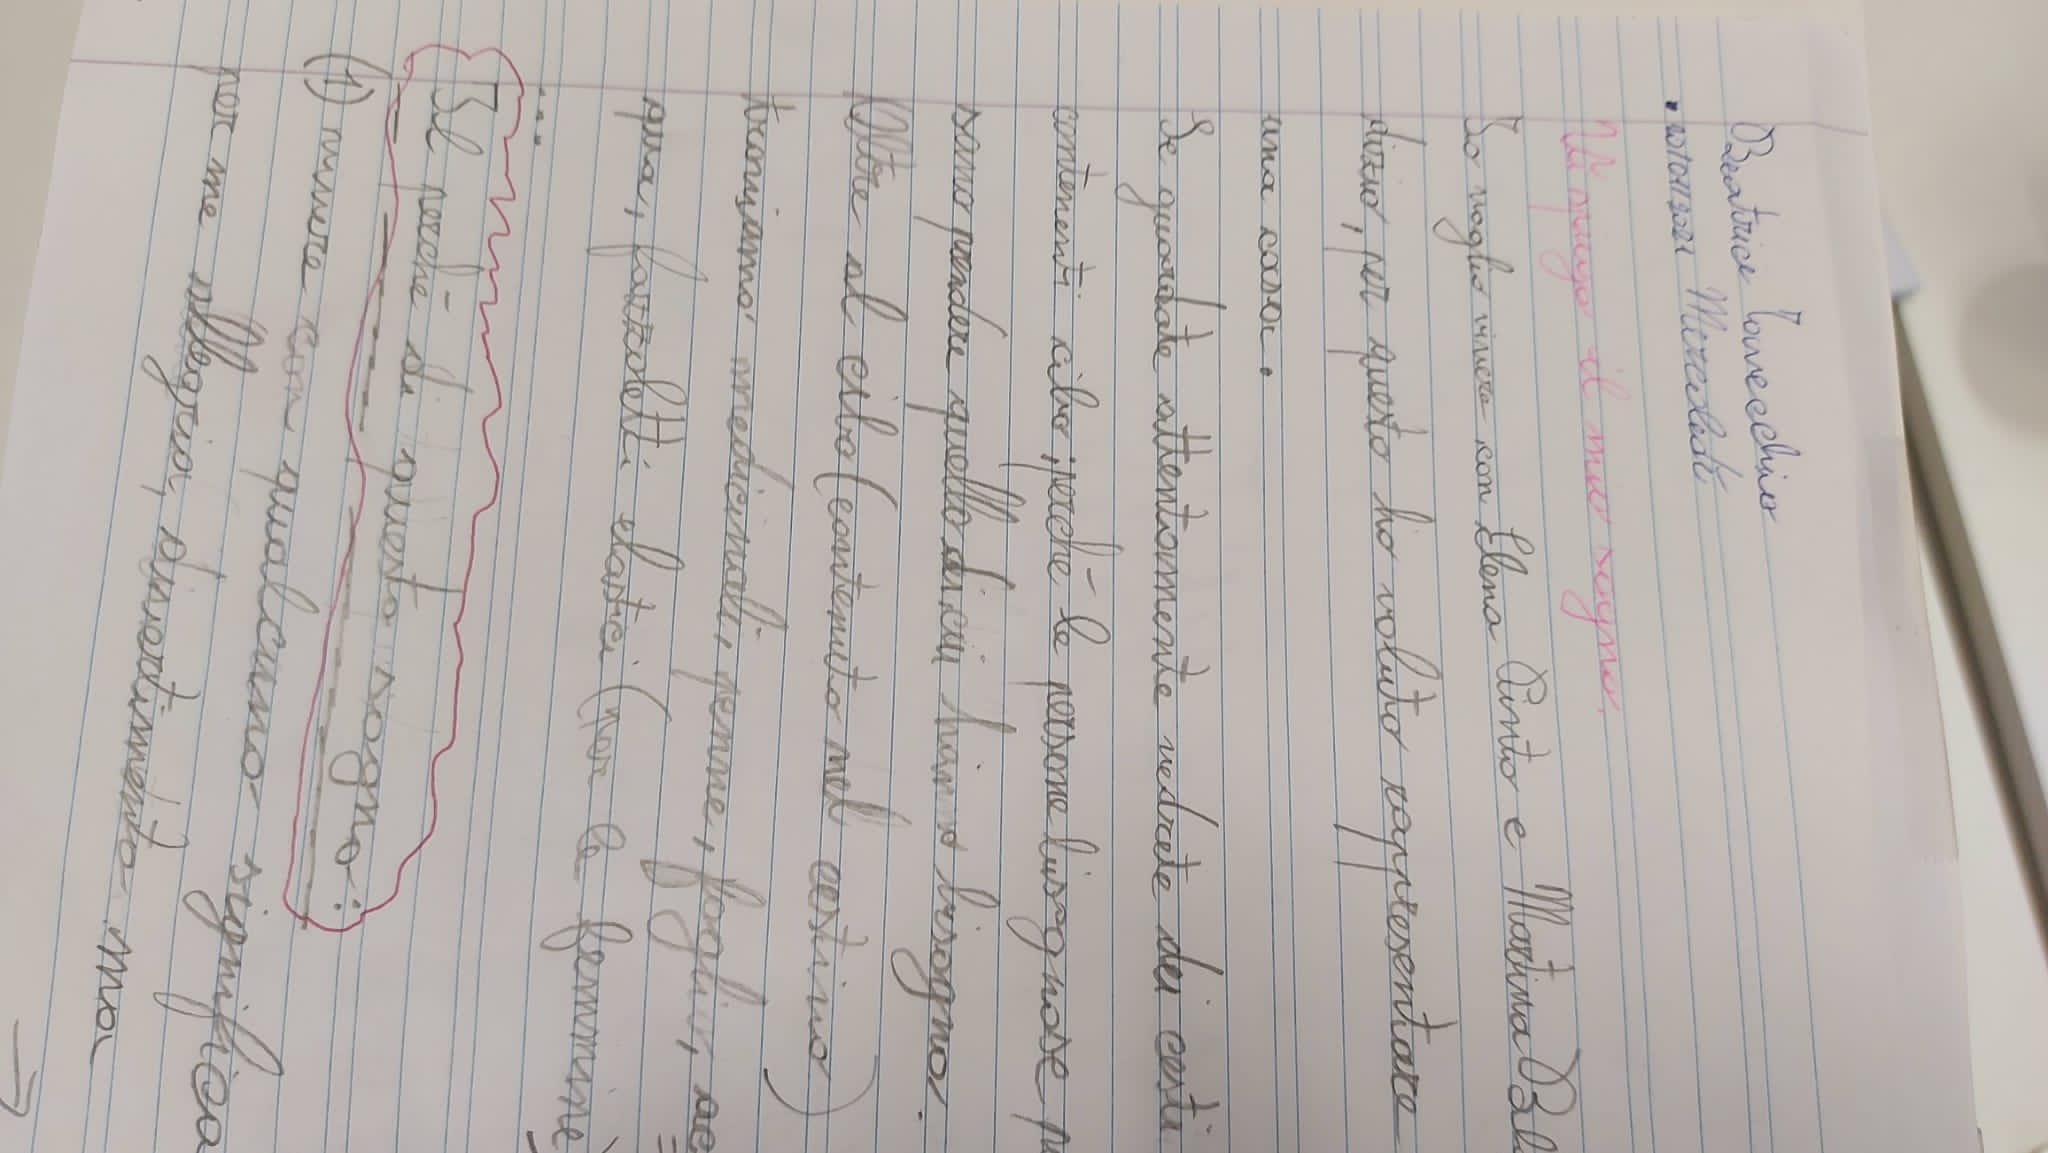 Beatrice Iovecchio
Mercoledì
Vi spiego il mio sogno.
Io voglio vivere con Elena Pinto e Martina
dizio, per questo ho voluto rappresentare
una casa.
Se guardate attentamente vedrete dei cesti
contenenti cibo, perché le persone bisognose
sono prendere quello di cui hanno bisogno.
Oltre al cibo (contenuto nel cestino)
troviamo medicinali, penne, fogli,
qua, fazzoletti elastici (per le femmine)
...
Il perché di questo sogno:
(1) vivere con qualcuno significa
per me allegria, divertimento ma